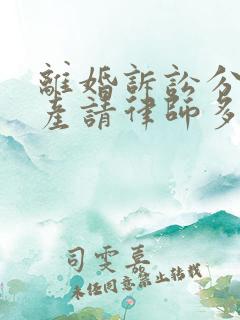 離婚訴訟分
產請律師多
司雯慕
未经同意禁止转载